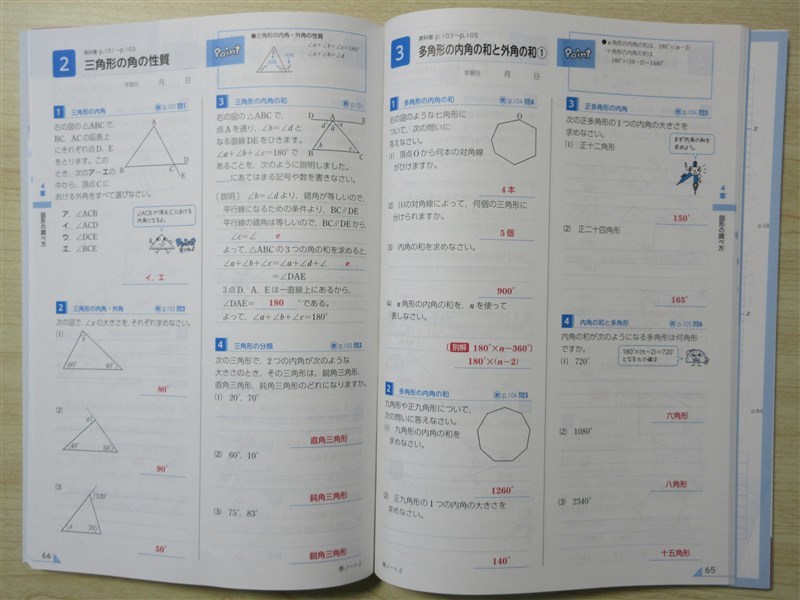 教科書 p.101~p.103
2 三角形の角の性質
学習日 月 日
Point
●三角形の内角・外角の性質
∠a+∠b+∠c=180°
1 三角形の内角
右の図の△ABCで,
BC, ACの延長上
にそれぞれ点D, E
をとります。この
とき, 次のア~エの
中から, 頂点Cに
おける外角をすべて選びなさい。
ア. ∠ACB
イ. ∠ACD
ウ. ∠DCE
エ. ∠BCE
A
B
C
D
E
イ, エ
2 三角形の内角・外角
次の図で, ∠xの大きさを, それぞれ求めなさい。
(1)
80°
(2)
90°
(3)
120°
50°
64
3 三角形の内角の和
右の図の△ABCで,
点Aを通り, ∠b=∠dと
なる直線DEをひきます。
∠a+∠b+∠c=180°で
あることを, 次のように説明しました。
にあてはまる記号や数を書きなさい。
[説明] ∠b=∠dより, 錯角が等しいので,
平行線になるための条件より, BC//DE
平行線の錯角は等しいので, BC//DEから,
∠c=∠ e
よって, △ABCの3つの角の和を求めると,
∠a+∠b+∠c=∠a+∠d+∠ e
=∠DAE
3点D, A, Eは一直線上にあるから,
∠DAE= 180 °である。
よって, ∠a+∠b+∠c=180°
4 三角形の分類
次の三角形で, 2つの内角が次のような
大きさのとき, その三角形は, 鋭角三角形,
直角三角形, 鈍角三角形のどれになりますか。
(1) 20°, 70°
直角三角形
(2) 60°, 10°
鈍角三角形
(3) 75°, 83°
鋭角三角形
4章
図形の調べ方
教科書 p.103~p.105
3 多角形の内角の和と外角の和①
学習日 月 日
Point
●n角形の内角の和は, 180°×(n-2)
十角形の内角の和は,
180°×(10-2)=1440°
1 多角形の内角の和
右の図のような七角形に
ついて, 次の問いに
答えなさい。
(1) 頂点Oから何本の対角線
がひけますか。
O
4本
(2) (1)の対角線によって, 何個の三角形に
分けられますか。
5個
(3) 内角の和を求めなさい。
900°
(4) n角形の内角の和を, nを使って
表しなさい。
[別解 180°×n-360°]
180°×(n-2)
2 多角形の内角の和
九角形や正九角形について,
次の問いに答えなさい。
(1) 九角形の内角の和を
求めなさい。
1260°
(2) 正九角形の1つの内角の大きさを
求めなさい。
140°
3 正多角形の内角
次の正多角形の1つの内角の大きさを
求めなさい。
(1) 正十二角形
まず内角の和を
求めよう。
150°
(2) 正二十四角形
165°
4 内角の和と多角形
内角の和が次のようになる多角形は何角形
ですか。
180°×(n-2)=720°
となるnの値は…
(1) 720°
六角形
(2) 1080°
八角形
(3) 2340°
十五角形
4章
図形の調べ方
65